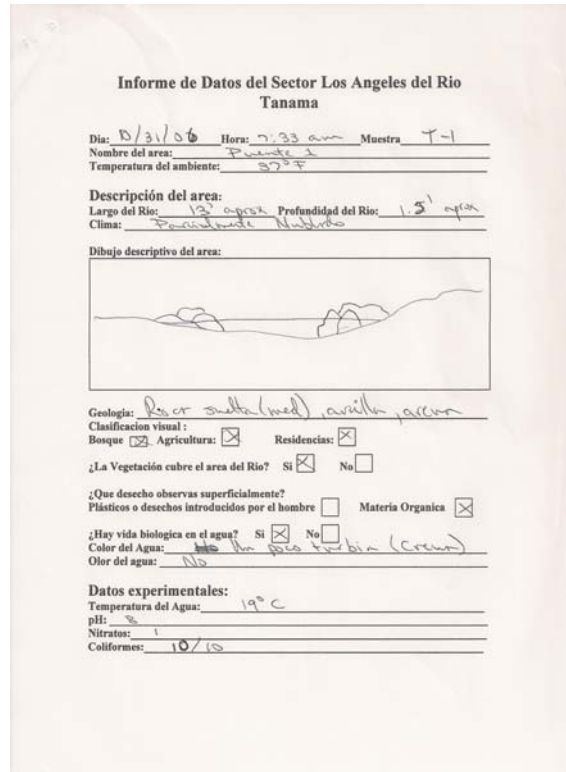 Informe de Datos del Sector Los Angeles del Rio
Tanama
Dia: 10/31/06 Hora: 7:33 am Muestra T-1
Nombre del area: Puente 1
Temperatura del ambiente: 37° F
Descripción del area:
Largo del Rio: 13' aprox Profundidad del Rio: 1.5' aprox
Clima: Parcialmente Nublado
Dibujo descriptivo del area:
Geologia: Roca suelta (med), arcilla, arena
Clasificacion visual :
Bosque Agricultura: Residencias:
¿La Vegetación cubre el area del Rio? Si No
¿Que desecho observas superficialmente?
Plásticos o desechos introducidos por el hombre Materia Organica
¿Hay vida biologica en el agua? Si No
Color del Agua: Un poco turbia (Crema)
Olor del agua: No
Datos experimentales:
Temperatura del Agua: 19° C
pH: 8
Nitratos: 1
Coliformes: 10/10